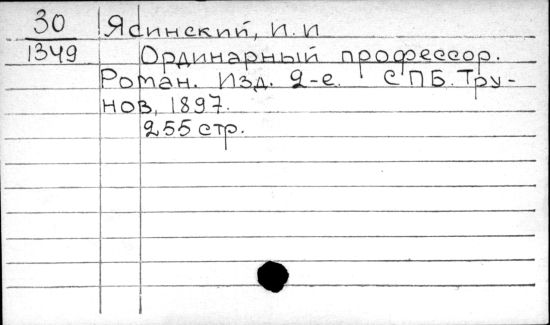 30 Ясинский, И. И
1349 Ординарный профессор.
Роман. Изд. 2-е. СПБ. Тру-
нов, 1897.
255 стр.